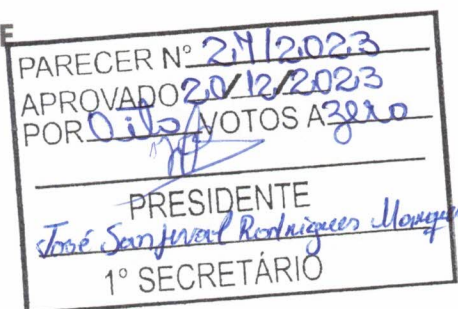 E
PARECER Nº 27/2023
APROVADO 20/12/2023
POR Oito VOTOS A zero
PRESIDENTE
José Rodrigues
1º SECRETÁRIO